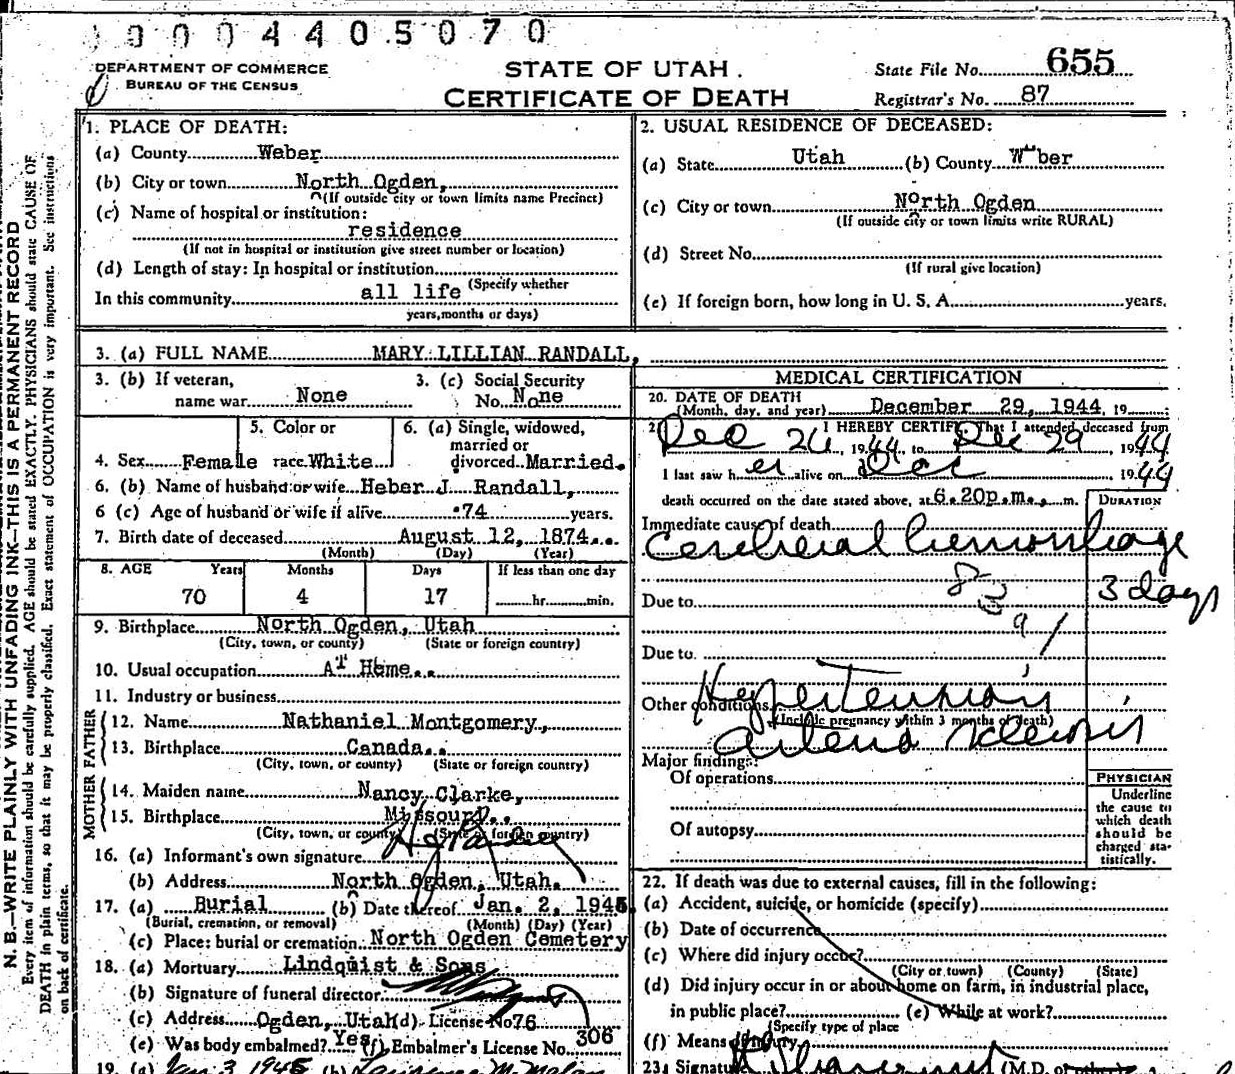 0 0 0 4 4 0 5 0 7 0
DEPARTMENT OF COMMERCE
BUREAU OF THE CENSUS
STATE OF UTAH.
CERTIFICATE OF DEATH
State File No. 655
Registrar's No. 87
N. B.—WRITE PLAINLY WITH UNFADING INK—THIS IS A PERMANENT RECORD
Every item of information should be carefully supplied. AGE should be stated EXACTLY. PHYSICIANS should state CAUSE OF
DEATH in plain terms, so that it may be properly classified. Exact statement of OCCUPATION is very important. See instructions
on back of certificate.
1. PLACE OF DEATH:
(a) County Weber
(b) City or town North Ogden,
(If outside city or town limits name Precinct)
(c) Name of hospital or institution:
residence
(If not in hospital or institution give street number or location)
(d) Length of stay: In hospital or institution
(Specify whether
In this community all life
years, months or days)
2. USUAL RESIDENCE OF DECEASED:
(a) State Utah (b) County W"ber
(c) City or town North Ogden
(If outside city or town limits write RURAL)
(d) Street No.
(If rural give location)
(e) If foreign born, how long in U. S. A. years.
3. (a) FULL NAME MARY LILLIAN RANDALL,
3. (b) If veteran,
name war None
3. (c) Social Security
No. None
4. Sex Female
5. Color or
race White
6. (a) Single, widowed,
married or
divorced Married.
6. (b) Name of husband or wife Heber J. Randall,
6 (c) Age of husband or wife if alive 74 years.
7. Birth date of deceased August 12, 1874..
(Month) (Day) (Year)
8. AGE Years Months Days If less than one day
70 4 17 hr. min.
9. Birthplace North Ogden, Utah
(City, town, or county) (State or foreign country)
10. Usual occupation AT Home..
11. Industry or business
FATHER
12. Name Nathaniel Montgomery,
13. Birthplace Canada..
(City, town, or county) (State or foreign country)
MOTHER
14. Maiden name Nancy Clarke,
15. Birthplace Missouri..
(City, town, or county) (State or foreign country)
16. (a) Informant's own signature
(b) Address North Ogden, Utah.
17. (a) Burial (b) Date thereof Jan. 2, 1945.
(Burial, cremation, or removal) (Month) (Day) (Year)
(c) Place: burial or cremation North Ogden Cemetery
18. (a) Mortuary Lindquist & Sons
(b) Signature of funeral director
(c) Address Ogden, Utah (d) License No. 76
(e) Was body embalmed? Yes (f) Embalmer's License No. 306
19. (a) Jan 3 1945 (b)
MEDICAL CERTIFICATION
20. DATE OF DEATH
(Month, day, and year) December 29, 1944, 19 ;
I HEREBY CERTIFY, That I attended deceased from
Dec 26, 1944, to Dec 29, 1944
I last saw her alive on Dec 1944
death occurred on the date stated above, at 6.20p.m., m.
DURATION
Immediate cause of death
Cerebral hemorrhage
3 days
83
Due to
9 1
Due to
Hypertension
Other conditions
(Include pregnancy within 3 months of death)
arterio sclerosis
Major findings:
Of operations
Of autopsy
PHYSICIAN
Underline
the cause to
which death
should be
charged sta-
tistically.
22. If death was due to external causes, fill in the following:
(a) Accident, suicide, or homicide (specify)
(b) Date of occurrence
(c) Where did injury occur?
(City or town) (County) (State)
(d) Did injury occur in or about home on farm, in industrial place,
in public place? (e) While at work?
(Specify type of place
(f) Means of injury
23. Signature (M.D. or other)